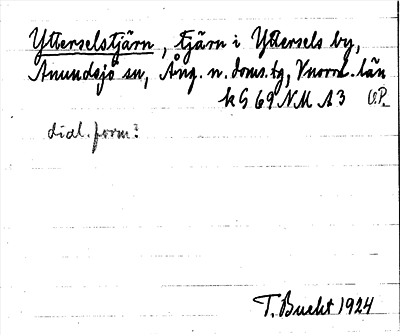 Ytterselstjärn, tjärn i Yttersels by,
Anundsjö sn, Ång. n. doms.tg, Vnorrl. län
kG 69 NM A3 O.P.
dial. form?
T. Bucht 1924